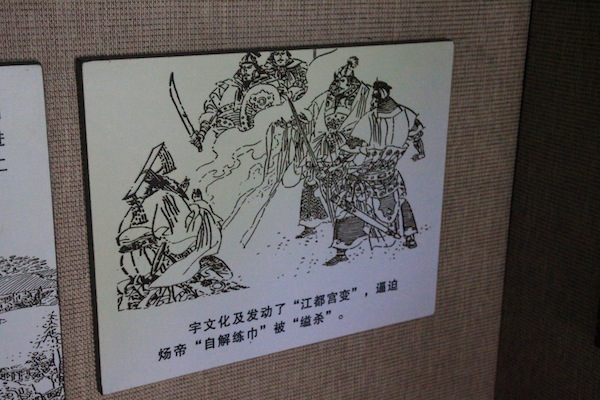 宇文化及发动了“江都宫变”，逼迫
炀帝“自解练巾”被“缢杀”。